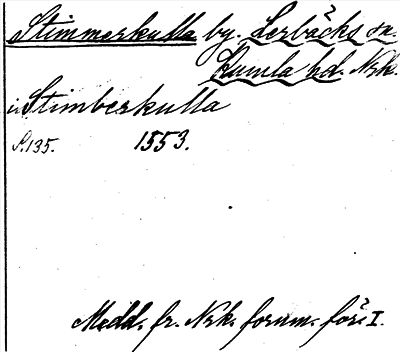 Stimmerkulla by. Lerbäcks sn.
Kumla hd. Nrk.
i Stimberkulla
S. 135. 1553.
Medd. fr. Nrk. fornm. för. I.